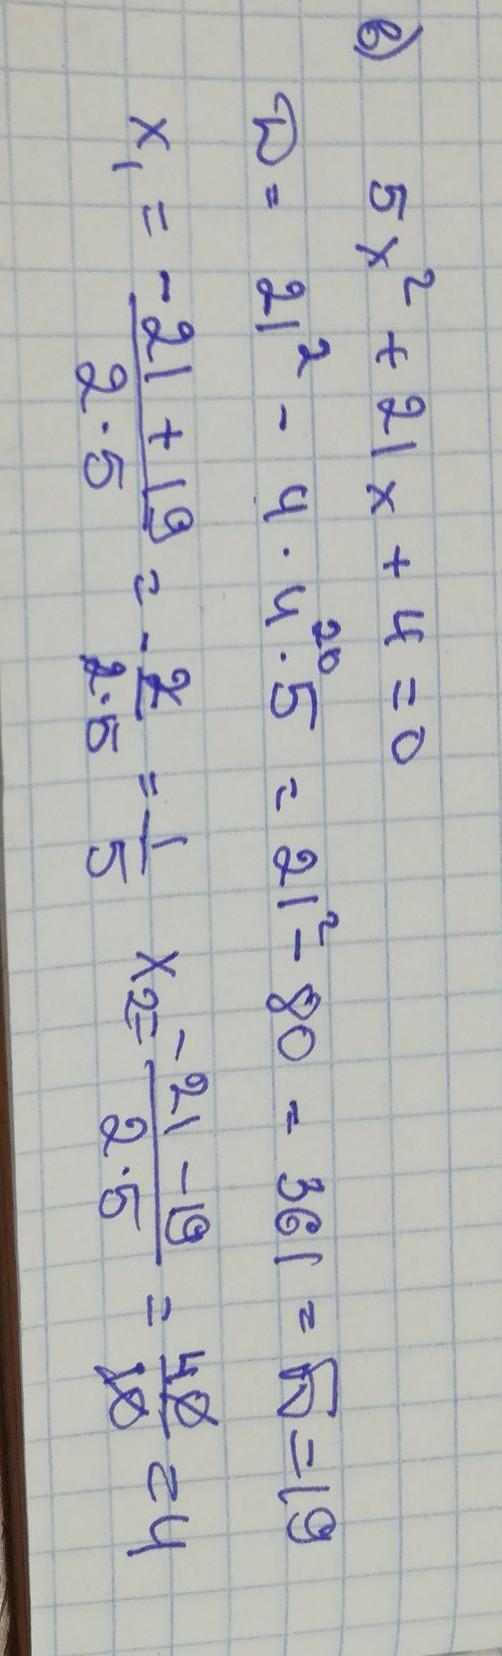 в) 5x² + 21x + 4 = 0
D = 21² - 4 · 4 · 5 20 = 21² - 80 = 361 = √D = 19
x₁ = -21 + 19 / 2·5 = - 2 / 2·5 = - 1 / 5 x₂ = -21 - 19 / 2·5 = 40 / 10 = 4